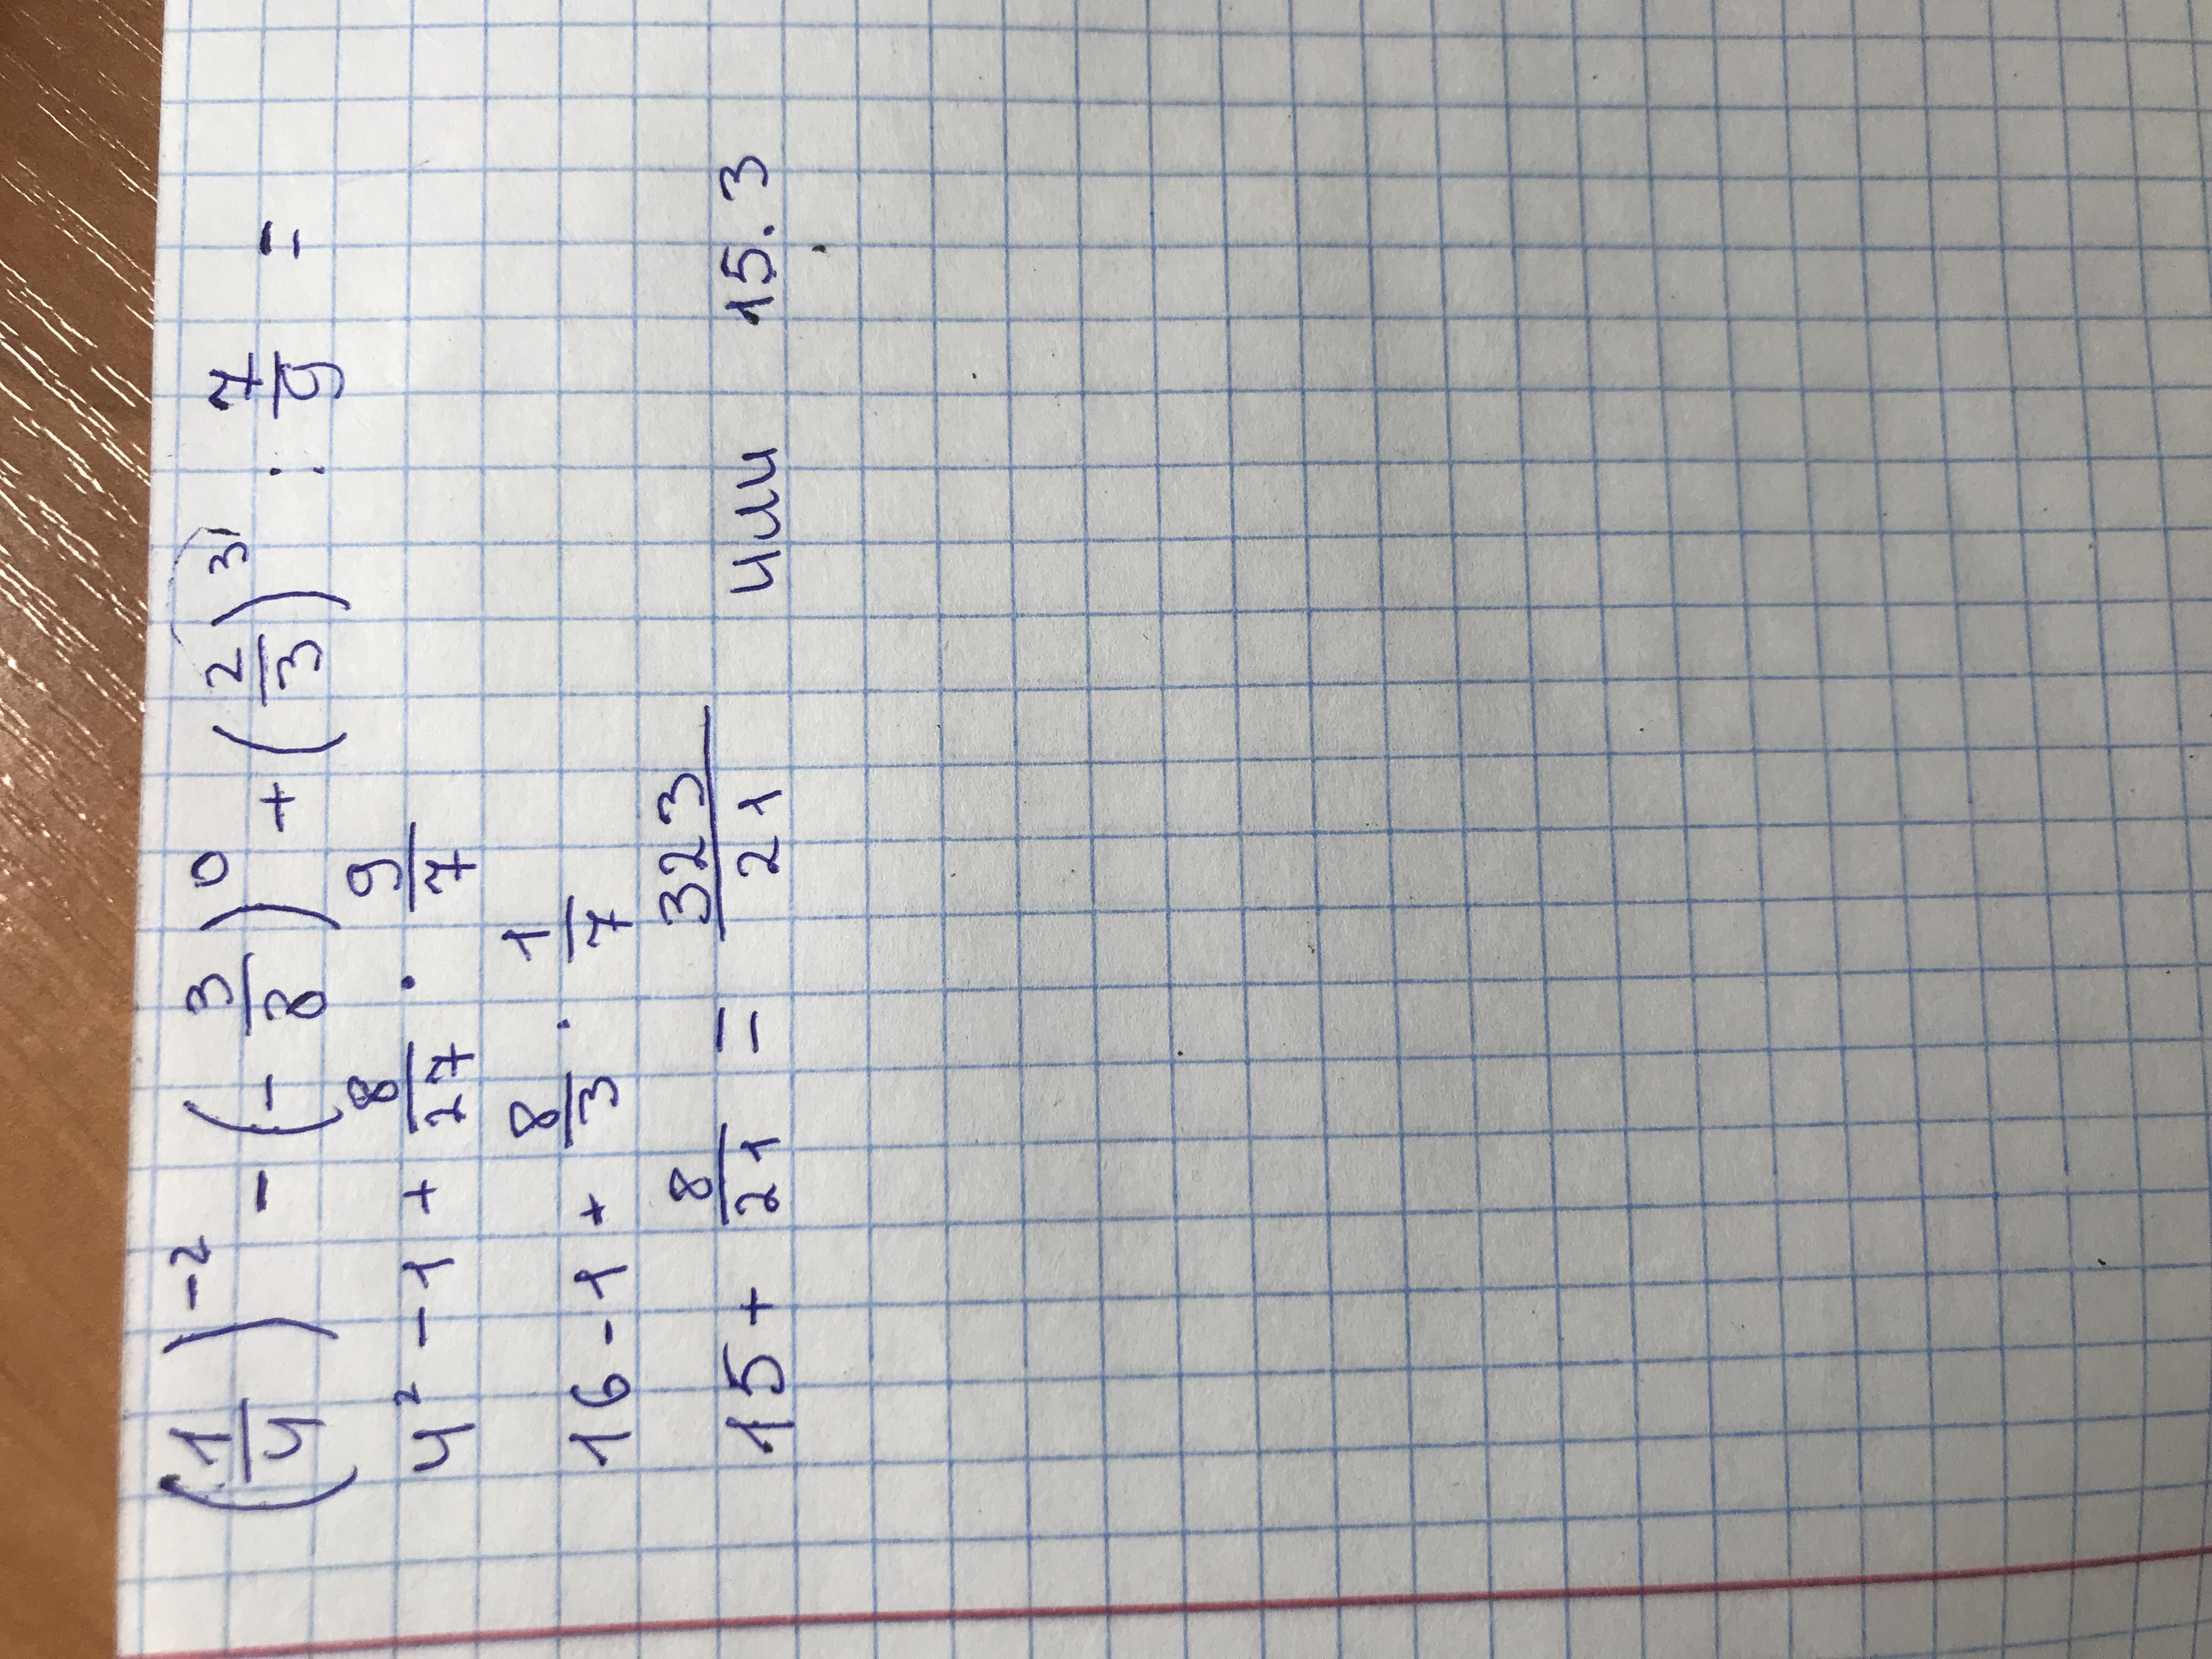 (1/4)⁻² - (-3/8)⁰ + (2/3)³ : 7/9 =
4² - 1 + 8/27 · 9/7
16 - 1 + 8/3 · 1/7
15 + 8/21 = 323/21 или 15.3